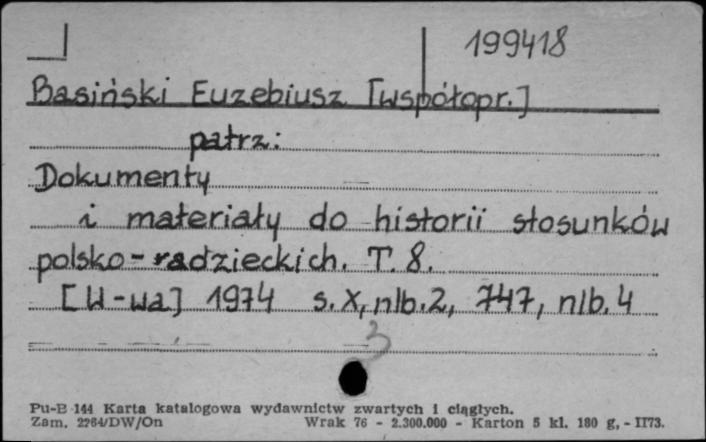 199418
Basiński Euzebiusz [współopr.]
patrz:
Dokumenty
i materiały do historii stosunków
polsko-radzieckich. T. 8.
[W-wa] 1974 s. X, nlb. 2, 747, nlb. 4
3
Pu-B 144 Karta katalogowa wydawnictw zwartych i ciągłych.
Zam. 2264/DW/On Wrak 76 - 2.300.000 - Karton 5 kl. 180 g, - II73.